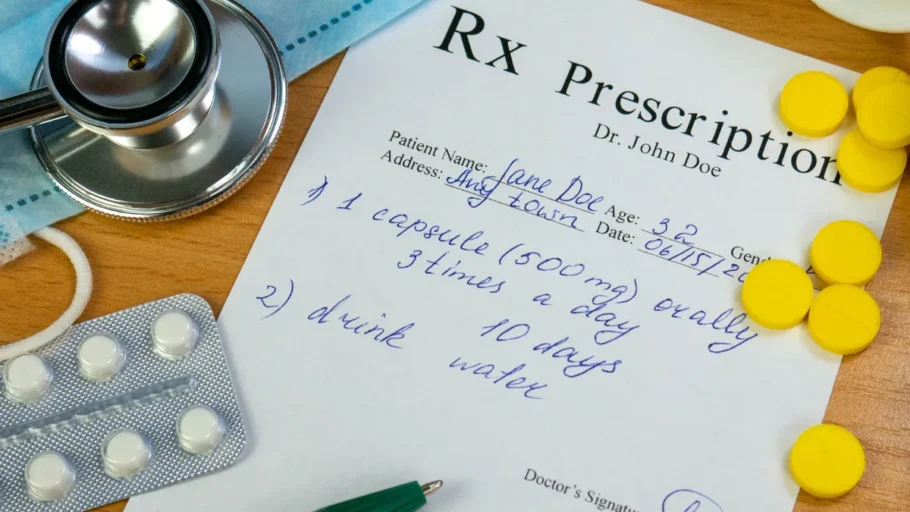 Rx Prescription
Dr. John Doe
Patient Name: Jane Doe Age: 32
Address: Any town Date: 06/15/20
1) 1 capsule (500 mg) orally
3 times a day
10 days
2) drink water
Doctor's